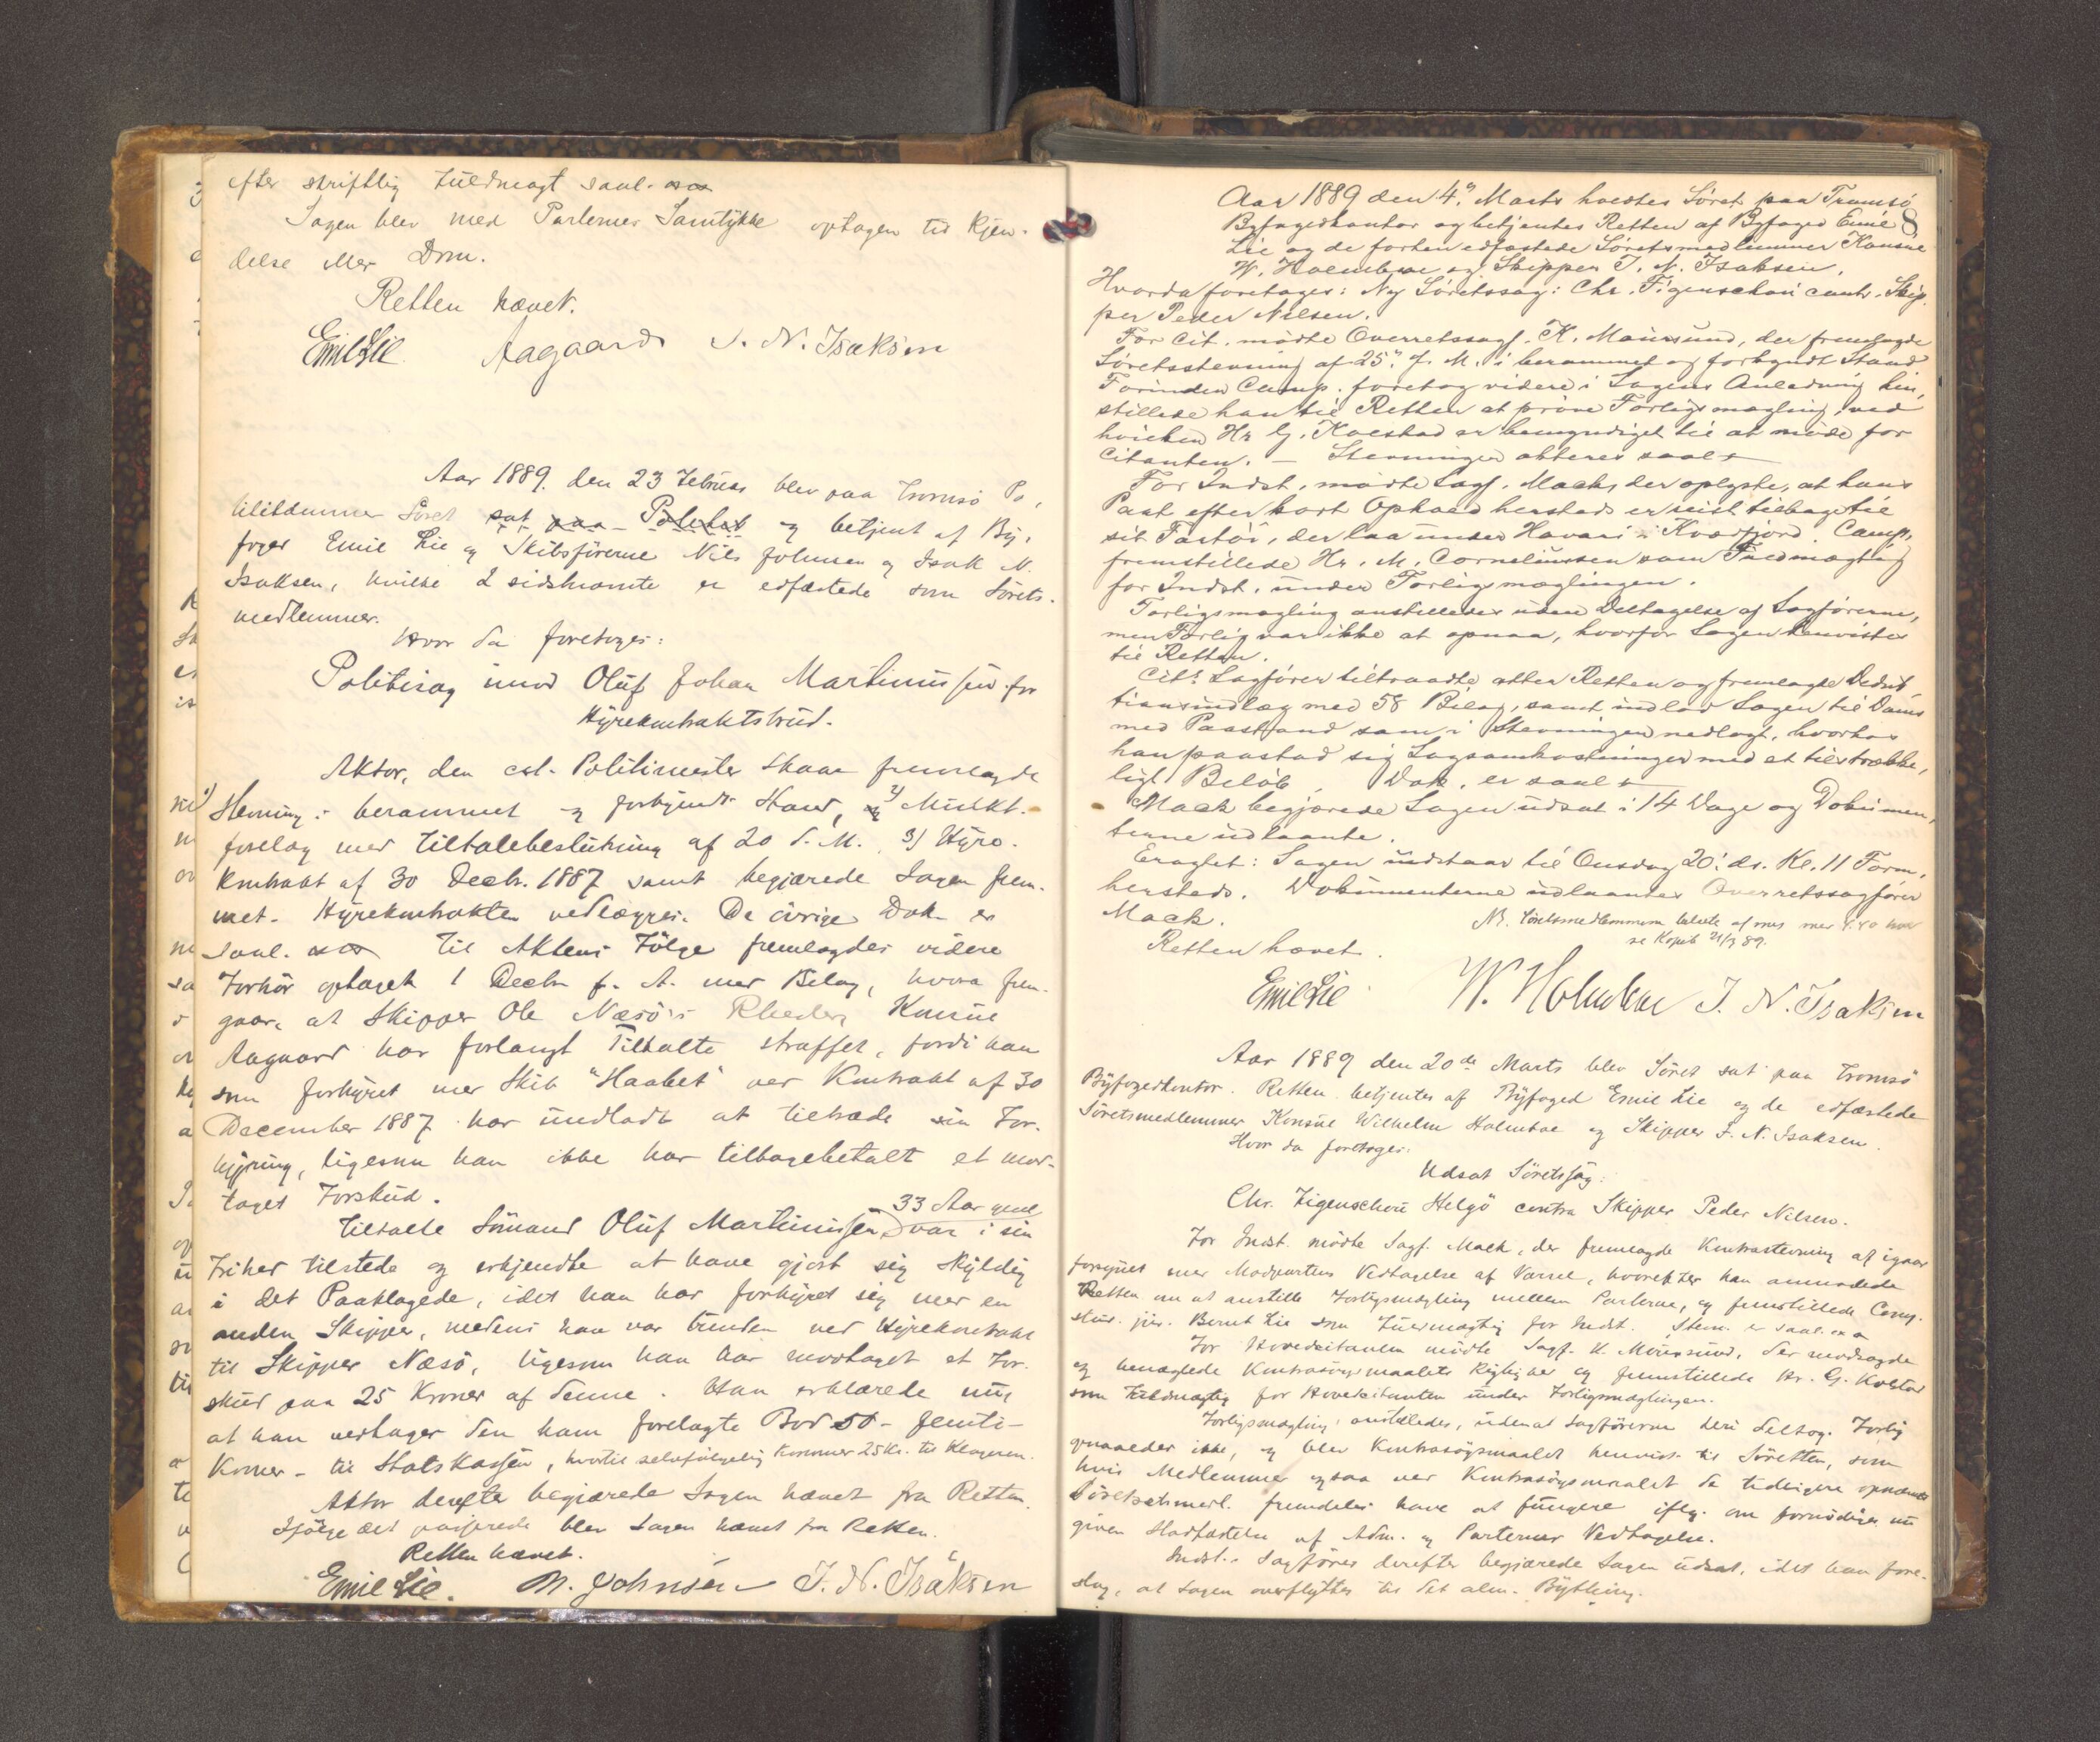 efter skriftlig Fuldmagt saal.
Sagen blev med Parternes Samtykke optagen til Kjen-
delse eller Dom.
Retten hævet.
Emil Lie Aagaard J. N. Isaksen
Aar 1889. den 23 Februar blev paa Tromsø Po-
litikammer Søret sat paa Politiet og betjent af By-
foged Emil Lie og Skibsførerne Nils Johnsen og Isak N.
Isaksen, hvilke 2 sidstnævnte er edfæstede som Sørets-
medlemmer.
Hvor da foretoges:
Politisag imod Oluf Johan Martinussen for
Hyrekontraktsbrud.
Aktor, den cst. Politimester Skaar fremlagde
1) Stevning i berammet og forkyndt Stand, og 2) Mulkt-
forelæg med Tiltalebeslutning af 20 d. M. 3) Hyre-
kontrakt af 30 Decbr. 1887 samt begjærede Sagen frem-
met. Hyrekontrakten vedlægges. De øvrige Dok. er
saal. Til Aktens Følge fremlagdes videre
Forhør optaget 1 Decbr f. A. med Bilag, hvoraf frem-
gaar, at Skipper Ole Næsø's Rheder, Konsul
Aagaard har forlangt Tiltalte straffet, fordi han
som forhyret med Skib "Haabet" ved Kontrakt af 30
December 1887 har undladt at tiltræde sin For-
hyring, ligesom han ikke har tilbagebetalt et mod-
taget Forskud.
33 Aar gml
Tiltalte Sømand Oluf Martinussen, var i sin
Frihed tilstede og erkjendte at have gjort sig skyldig
i det Paaklagede, idet han har forhyret sig med en
anden Skipper, medens han var bunden ved Hyrekontrakt
til Skipper Næsø, ligesom han har modtaget et For-
skud paa 25 Kroner af denne. Han erklærede nu,
at han vedtager den ham forelagte Bod 50 - femti -
Kroner - til Statskassen, hvortil selvfølgelig kommer 25 Kr. til Klageren.
Aktor derefter begjærede Sagen hævet fra Retten.
Ifølge det passerede blev Sagen hævet fra Retten.
Retten hævet.
Emil Lie. N. Johnsen J. N. Isaksen
8
Aar 1889 den 4de Marts holdtes Søret paa Tromsø
Byfogedkontor og betjentes Retten af Byfoged Emil
Lie og de forhen edfæstede Søretsmedlemmer Konsul
W. Holmboe og Skipper J. N. Isaksen.
Hvorda foretoges: Ny Søretssag: Chr. Figenschou contr. Skip-
per Peder Nilsen.
For Cit. mødte Overretssagf. K. Maursund, der fremlagde
Søretsstevning af 25de f. M. i berammet og forkyndt Stand
Forinden Comp. foretog videre i Sagens Anledning hen-
stillede han til Retten at prøve Forligsmægling, ved
hvilken Hr G. Kolstad er bemyndiget til at møde for
Citanten. - Stevningen akteres saal.
For Indst. mødte Sagf. Mack, der oplyste, at hans
Part efter kort Ophold herstæds er reist tilbage til
sit Fartøi, der laa under Havari i Kvæfjord. Comp.
fremstillede Hr. M. Corneliussen som Fuldmægtig
for Indst. under Forligsmæglingen.
Forligsmægling anstilledes uden Deltagelse af Sagførerne,
men Forlig var ikke at opnaa, hvorfor Sagen henvistes
til Retten.
Cits Sagfører tiltraadte atter Retten og fremlagde Deduk-
tionsindlæg med 58 Bilag, samt indlod Sagen til Doms
med Paastand som i Stevningen nedlagt, hvorhos
han paastod sig Sagsomkostninger med et tilstrække-
ligt Beløb. Dok. er saal.
Mack begjærede Sagen udsat i 14 Dage og Dokumen-
terne udlaante.
Eragtet: Sagen udstaar til Onsdag 20: ds. Kl. 11 Form.
herstæds. Dokumenterne udlaantes Overretssagfører
Mack.
NB. Søretsmedlemmerne betalte af mig med 4.40 hver
se Kopib 21/3 89.
Retten hævet.
Emil Lie W. Holmboe J. N. Isaksen
Aar 1889 den 20de Marts blev Søret sat paa Tromsø
Byfogedkontor. Retten betjentes af Byfoged Emil Lie og de edfæstede
Søretsmedlemmer Konsul Wilhelm Holmboe og Skipper J. N. Isaksen.
Hvor da foretoges:
Udsat Søretssag:
Chr. Figenschou Helgø contra Skipper Peder Nilsen.
For Indst. mødte Sagf. Mack, der fremlagde Kontrastevning af igaar
forsynet med Modpartens Vedtagelse af Varsel, hvorefter han anmodede
Retten om at anstille Forligsmægling mellem Parterne, og fremstillede Comp.
stud. jur. Bernt Lie som Fuldmægtig for Indst. Stevn. er saal.
For Hovedcitanten mødte Sagf. K. Maursund, der modsagde
og benægtede Kontrasøgsmaalets Rigtighed og fremstillede Hr. G. Kolstad
som Fuldmægtig for Hovedcitanten under Forligsmæglingen.
Forligsmægling anstilledes, uden at Sagførerne deri deltog. Forlig
opnaaedes ikke, og blev Kontrasøgsmaalet henvist til Søretten, som
hvis Medlemmer ogsaa ved Kontrasøgsmaalet de tidligere opnævnte
Søretsmedl. fremdeles have at fungere iflg. om fornødiges nu
given Stadfæstelse af Adm. og Parternes Vedtagelse.
Indst.s Sagfører derefter begjærede Sagen udsat, idet han fore-
slog, at Sagen overflyttes til det alm. Bything.